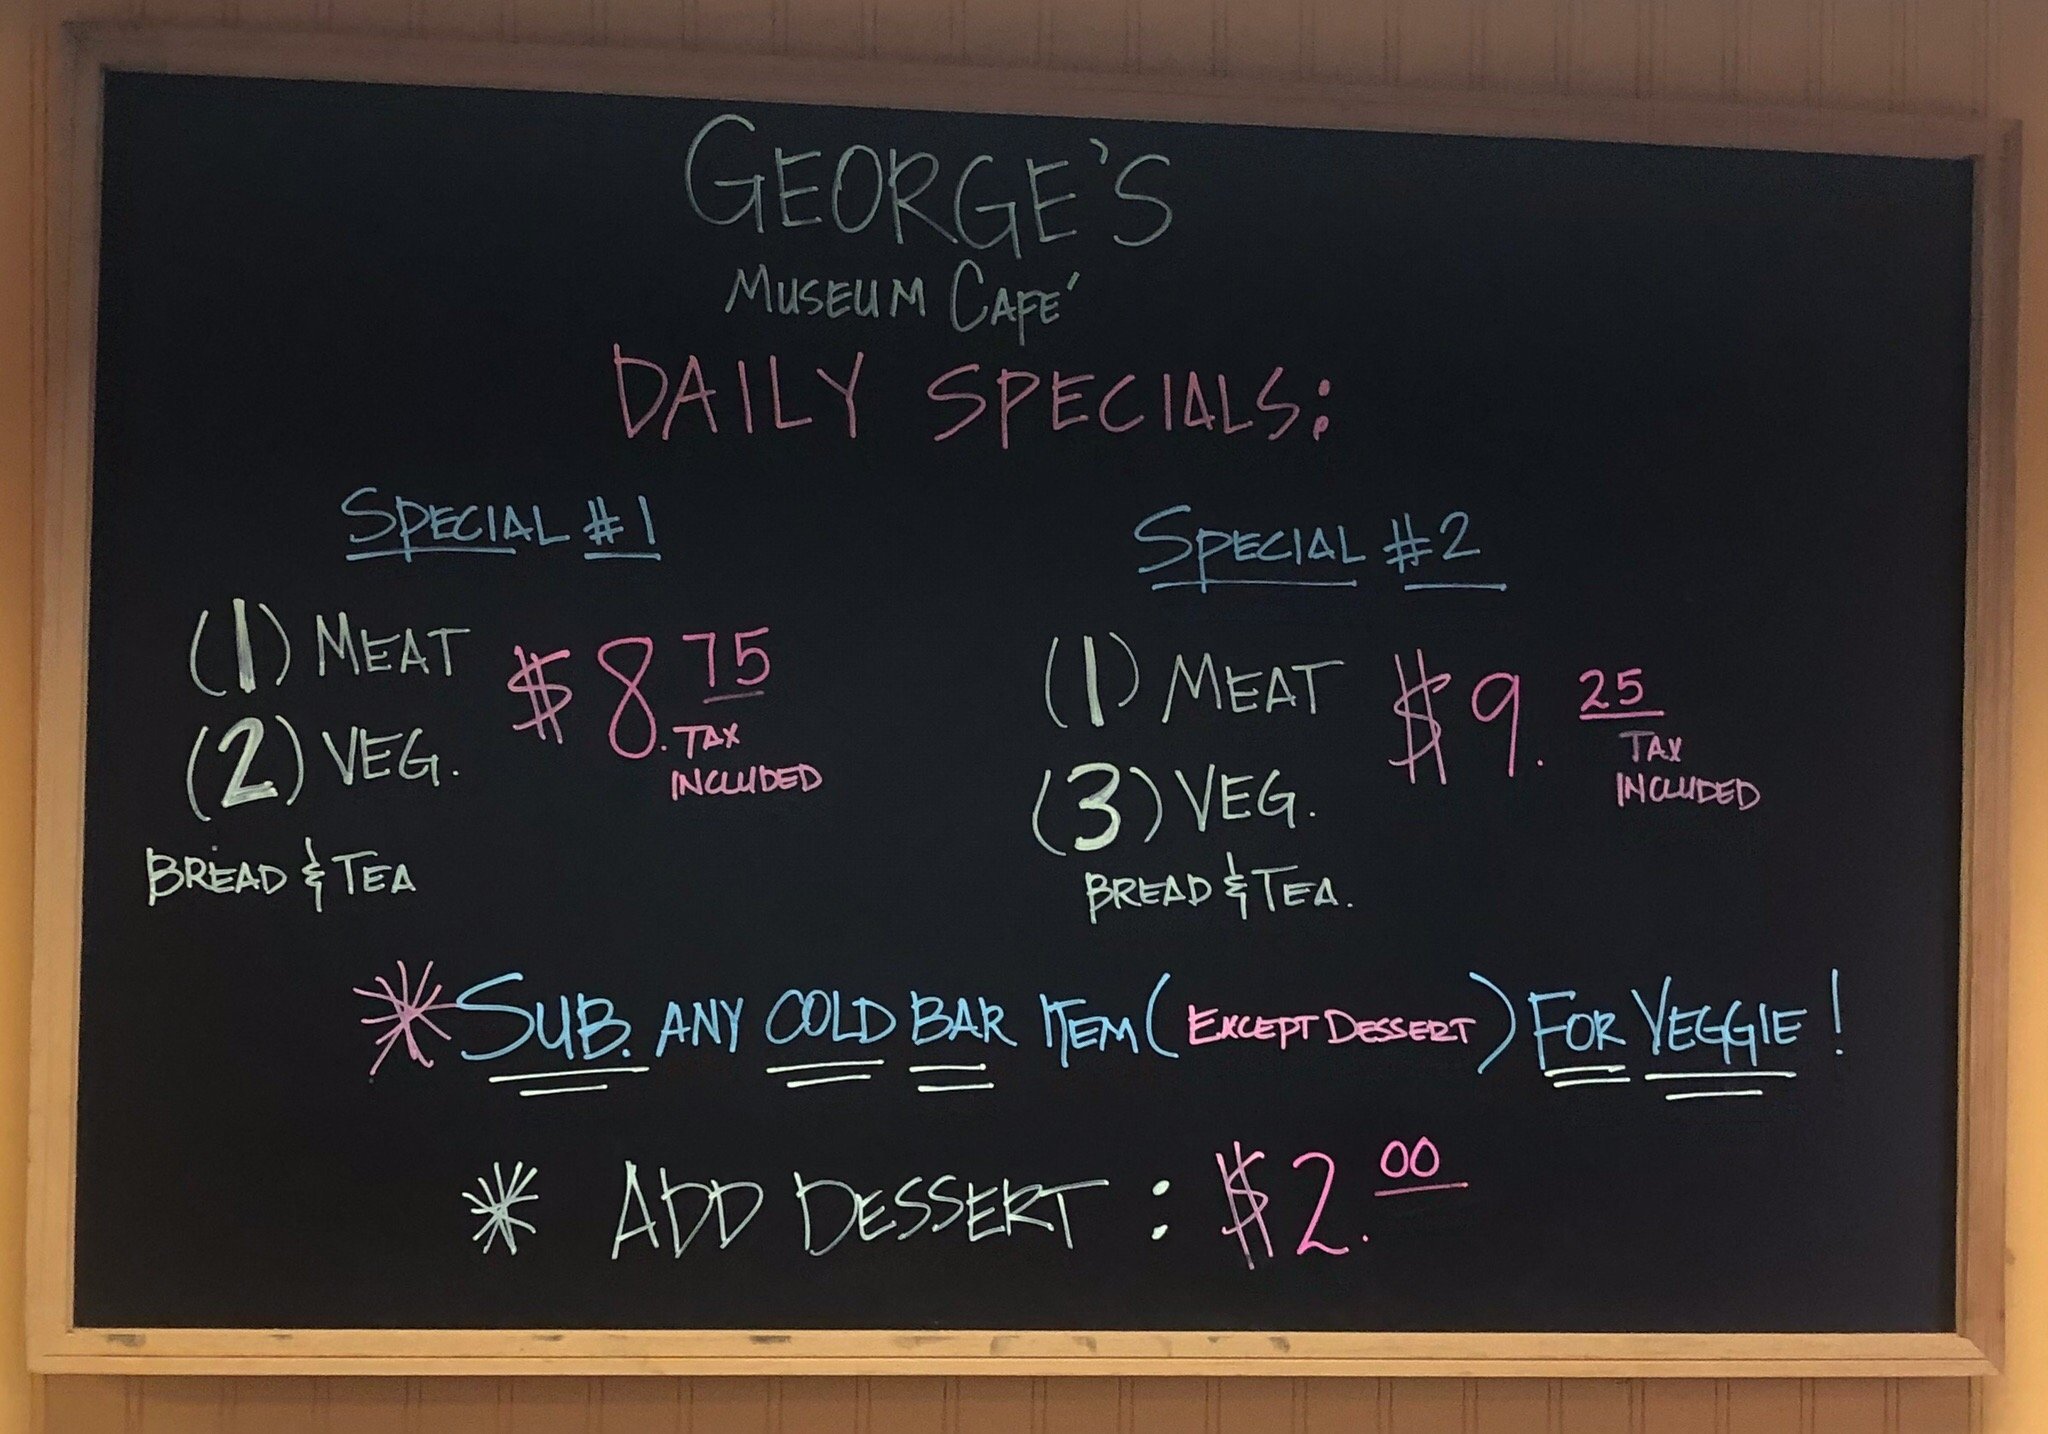 GEORGE'S
MUSEUM CAFE'
DAILY SPECIALS:
SPECIAL #1
(1) MEAT $8.75
(2) VEG. TAX
INCLUDED
BREAD & TEA
SPECIAL #2
(1) MEAT $9.25
(3) VEG. TAX
INCLUDED
BREAD & TEA.
* SUB. ANY COLD BAR ITEM (EXCEPT DESSERT) FOR VEGGIE!
* ADD DESSERT: $2.00